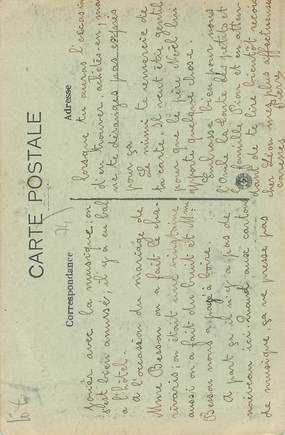 CARTE POSTALE
Correspondance
Adresse
jouer avec la musique; on
s'est bien amusé; il y a eu bal
à l'hôtel.
à l'occasion du mariage de
Mme Besson on a fait le cha-
rivari; on était une vingtaine
aussi on a fait du bruit et Mme
Besson nous a payé à boire.
A part ça il n'y a pas de
nouveau ici. Quand aux cartons
de musique, ça ne presse pas
lorsque tu auras l'occasion
d'en trouver achètes-en, mais
ne te déranges pas exprès
pour ça
Le mimi te remercie de
ta carte. Il veut être gentil
pour que le père Noël lui
apporte quelque chose.
Embrasse bien pour nous
l'oncle la tante les petits et
la famille Picot et en atten-
dant de te lire bientôt, reçois
cher Léon mes plus affectueuses
caresses